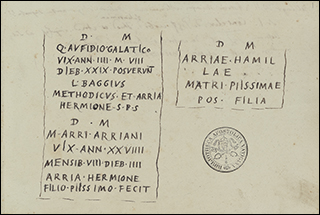 D · M
Q · AVFIDIO GALATICO
VIX · ANN · IIII · M · VIII
DIEB · XXIX · POSVERVNT
L · BAGGIVS
METHODICVS · ET · ARRIA
HERMIONE · S · P · S
D · M
M · ARRI · ARRIANI
VIX · ANN · XXVIIII
MENSIB · VIII · DIEB · IIII
ARRIA · HERMIONE
FILIO · PIISSIMO · FECIT
D M
ARRIAE · HAMIL
LAE
MATRI · PIISSIMAE
POS · FILIA